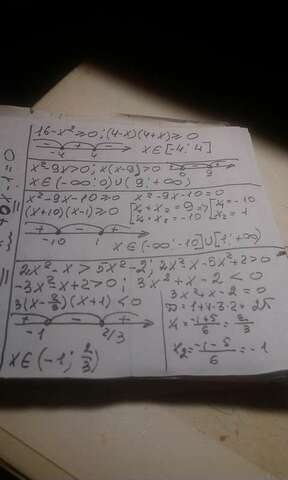 16-x²≥0; (4-x)(4+x)≥0
- + -
-4 4 x∈[-4; 4]
x²-9x>0; x(x-9)>0
0 9
x∈(-∞; 0)∪(9; +∞)
x²-9x-10≥0 x²-9x-10=0
(x+10)(x-1)≥0 x₁+x₂=9 => x₁=-10
x₁·x₂=-10 x₂=1
+ - +
-10 1
x∈(-∞; -10]∪[1; +∞)
2x²-x>5x²-2; 2x²-x-5x²+2>0
-3x²-x+2>0; 3x²+x-2<0
3(x-2/3)(x+1)<0 3x²+x-2=0
D=1+4·3·2=25
+ - +
-1 2/3
x₁=-1+5/6=2/3
x₂=-1-5/6=-1
x∈(-1; 2/3)